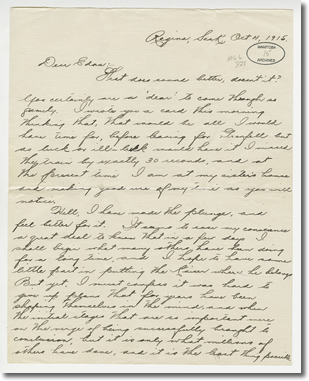 Regina, Sask, Oct 11, 1915,
MANITOBA
ARCHIVES
Dear Edna:
That does sound better, doesn't it?
You certainly are a 'dear' to come through so
I wrote you a card this morning
thinking that, that would be all I would
have time for, before leaving for but
as luck or ill luck would have it I missed
the train by exactly 30 seconds, and at
the present time I am at my sisters house
and making good use of my time as you will
notice.
Well, I have made the plunge, and
feel better for it. It my conscience
a great deal to know that in a few days I
shall begin what many others have been doing
for a long time, and I hope to have some
little part in putting the Kaiser where he belongs
But yet, I must confess it was hard to
give up after that for years have been
shaping themselves in the mind, and when
the initial stages that are so important were
on the verge of being successfully brought to
conclusion, but it is only what millions of
others have done, and it is the least thing possible